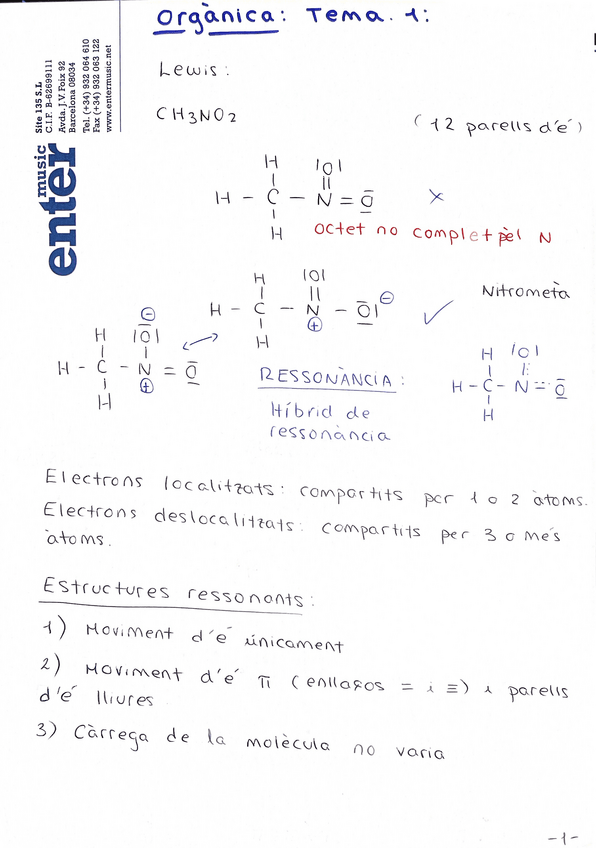 Orgànica: Tema. 1:
enter music
Site 135 S.L
C.I.F. B-62699111
Avda. J.V. Foix 92
Barcelona 08034
Tel. (+34) 932 064 610
Fax (+34) 932 063 122
www.entermusic.net
Lewis:
CH3NO2
(12 parells d'é)
H |O|
| ||
H - C - N = O ×
|
H
octet no complet pel N
Nitrometà
H |O|
| ||
H - C - N - O| ⊖ ✓
| ⊕
H
⊖
H |O|
| |
H - C - N = O
| ⊕
H
↔
RESSONÀNCIA:
Híbrid de
ressonància
H |O|
| |:
H - C - N = O
|
H
Electrons localitzats: compartits per 1 o 2 àtoms.
Electrons deslocalitzats: compartits per 3 o més
àtoms.
Estructures ressonants:
1) Moviment d'é únicament
2) Moviment d'é π (enllaços = i ≡) i parells
d'é lliures
3) Càrrega de la molècula no varia
-1-